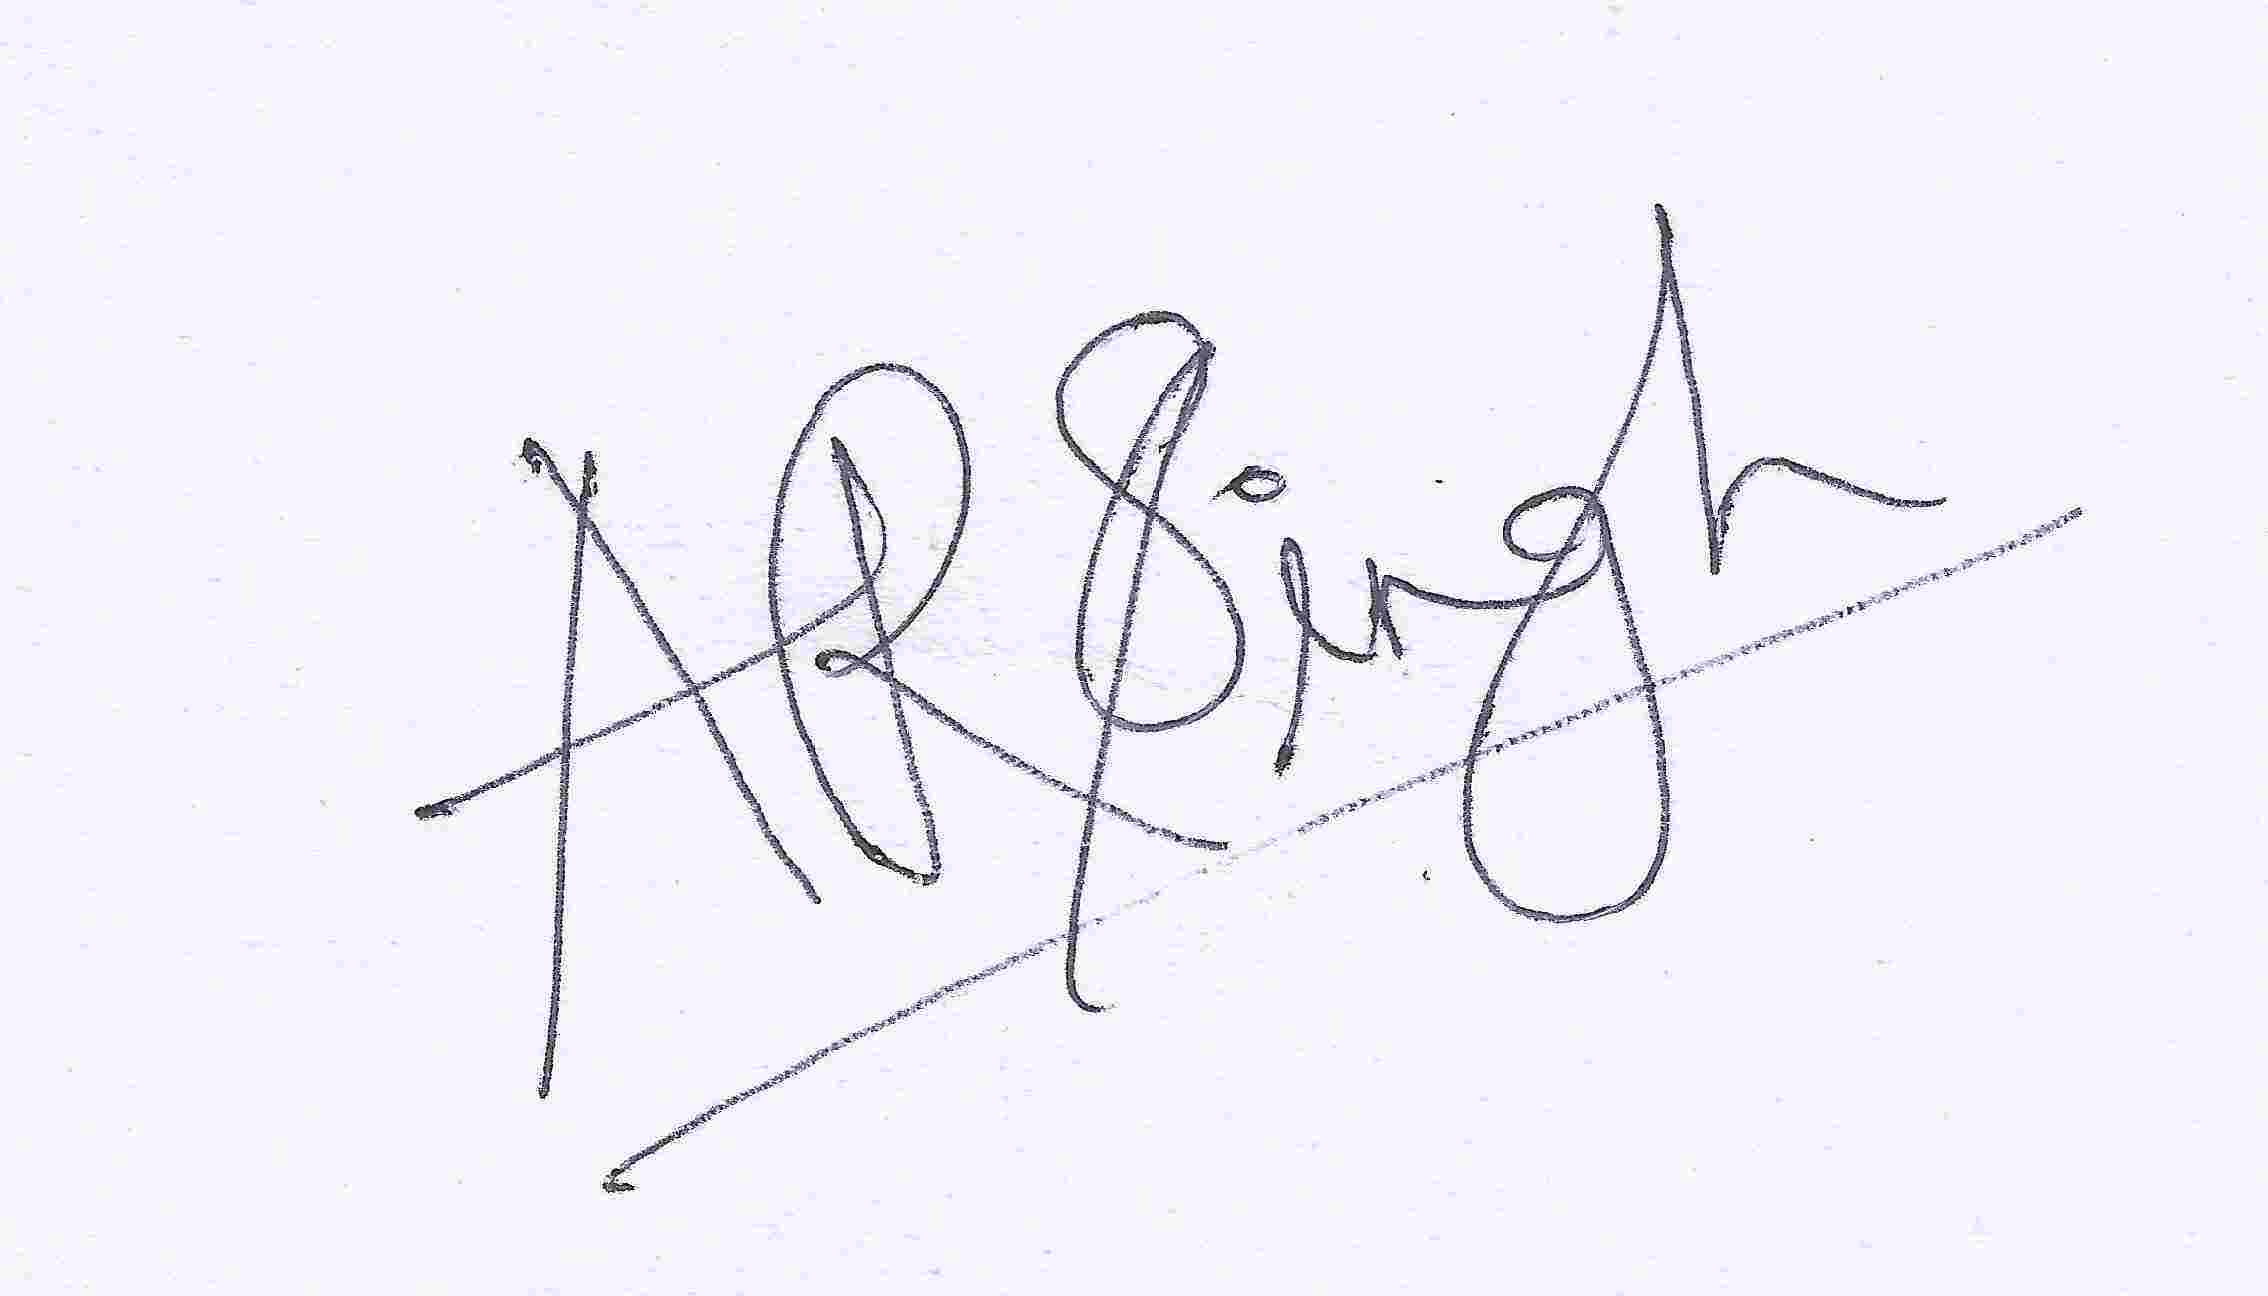 AR Singh